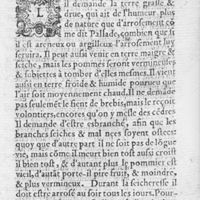 L
Il demande la terre grasse &
drue, qui ait de l'humeur plus
de nature que d'arrosement cõ
me dit Pallade, combien que si
il est areneux ou argilleux l'arrosement luy
seruira. Il peut aussi venir en terre maigre &
seiche, mais les pommes seront vermineuses
& subiettes à tomber d'elles mesmes. Il vient
aussi en terre froide & humide pourueu que
l'air soit moyennement chaud. Il ne demãde
pas seulemẽt le fient de brebis, mais le reçoit
volontiers, encores qu'on y mesle des cẽdres
Il demande d'estre esbranché, afin que les
branches seiches & mal nees soyent ostees:
quoy que d'autre part il ne soit pas de lõgue
vie, mais cõme il meurt bien tost aussi croist
il bien tost, & d'autant plus le pommier est
vieil, d'autãt porte-il pire fruit, & moindre,
& plus vermineux. Durant la seicheresse il
doit estre arrosé au soir tous les iours. Pour-